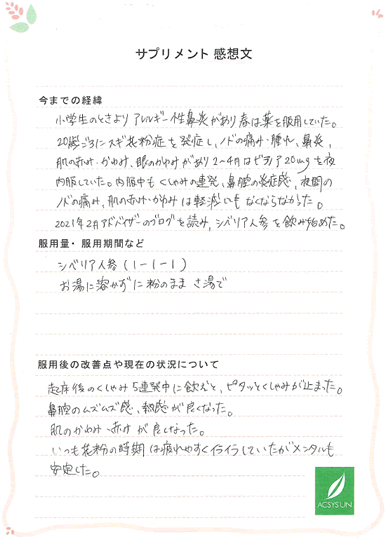 サプリメント 感想文
今までの経緯
小学生のときより アレルギー性鼻炎があり 春は薬を服用していた。
20歳ごろにスギ花粉症を発症し、ノドの痛み・腫れ、鼻炎、
肌の赤み・かゆみ、眼のかゆみがあり 2〜4月はビラノア20mgを夜
内服していた。内服中も くしゃみの連発、鼻腔の炎症感、夜間の
ノドの痛み、肌の赤み・かゆみは軽減しいも なくならなかった。
2021年2月アドバイザーのブログを読み、シベリア人参を飲み始めた。
服用量・服用期間など
シベリア人参 (1-1-1)
お湯に溶かずに粉のまま さ湯で
服用後の改善点や現在の状況について
起床後のくしゃみ5連発中に飲むと、ピタッとくしゃみが止まった。
鼻腔のムズムズ感、熱感が良くなった。
肌のかゆみ・赤みが良くなった。
いつも花粉の時期は疲れやすくイライラしていたがメンタルも
安定した。
ACSYS'UN